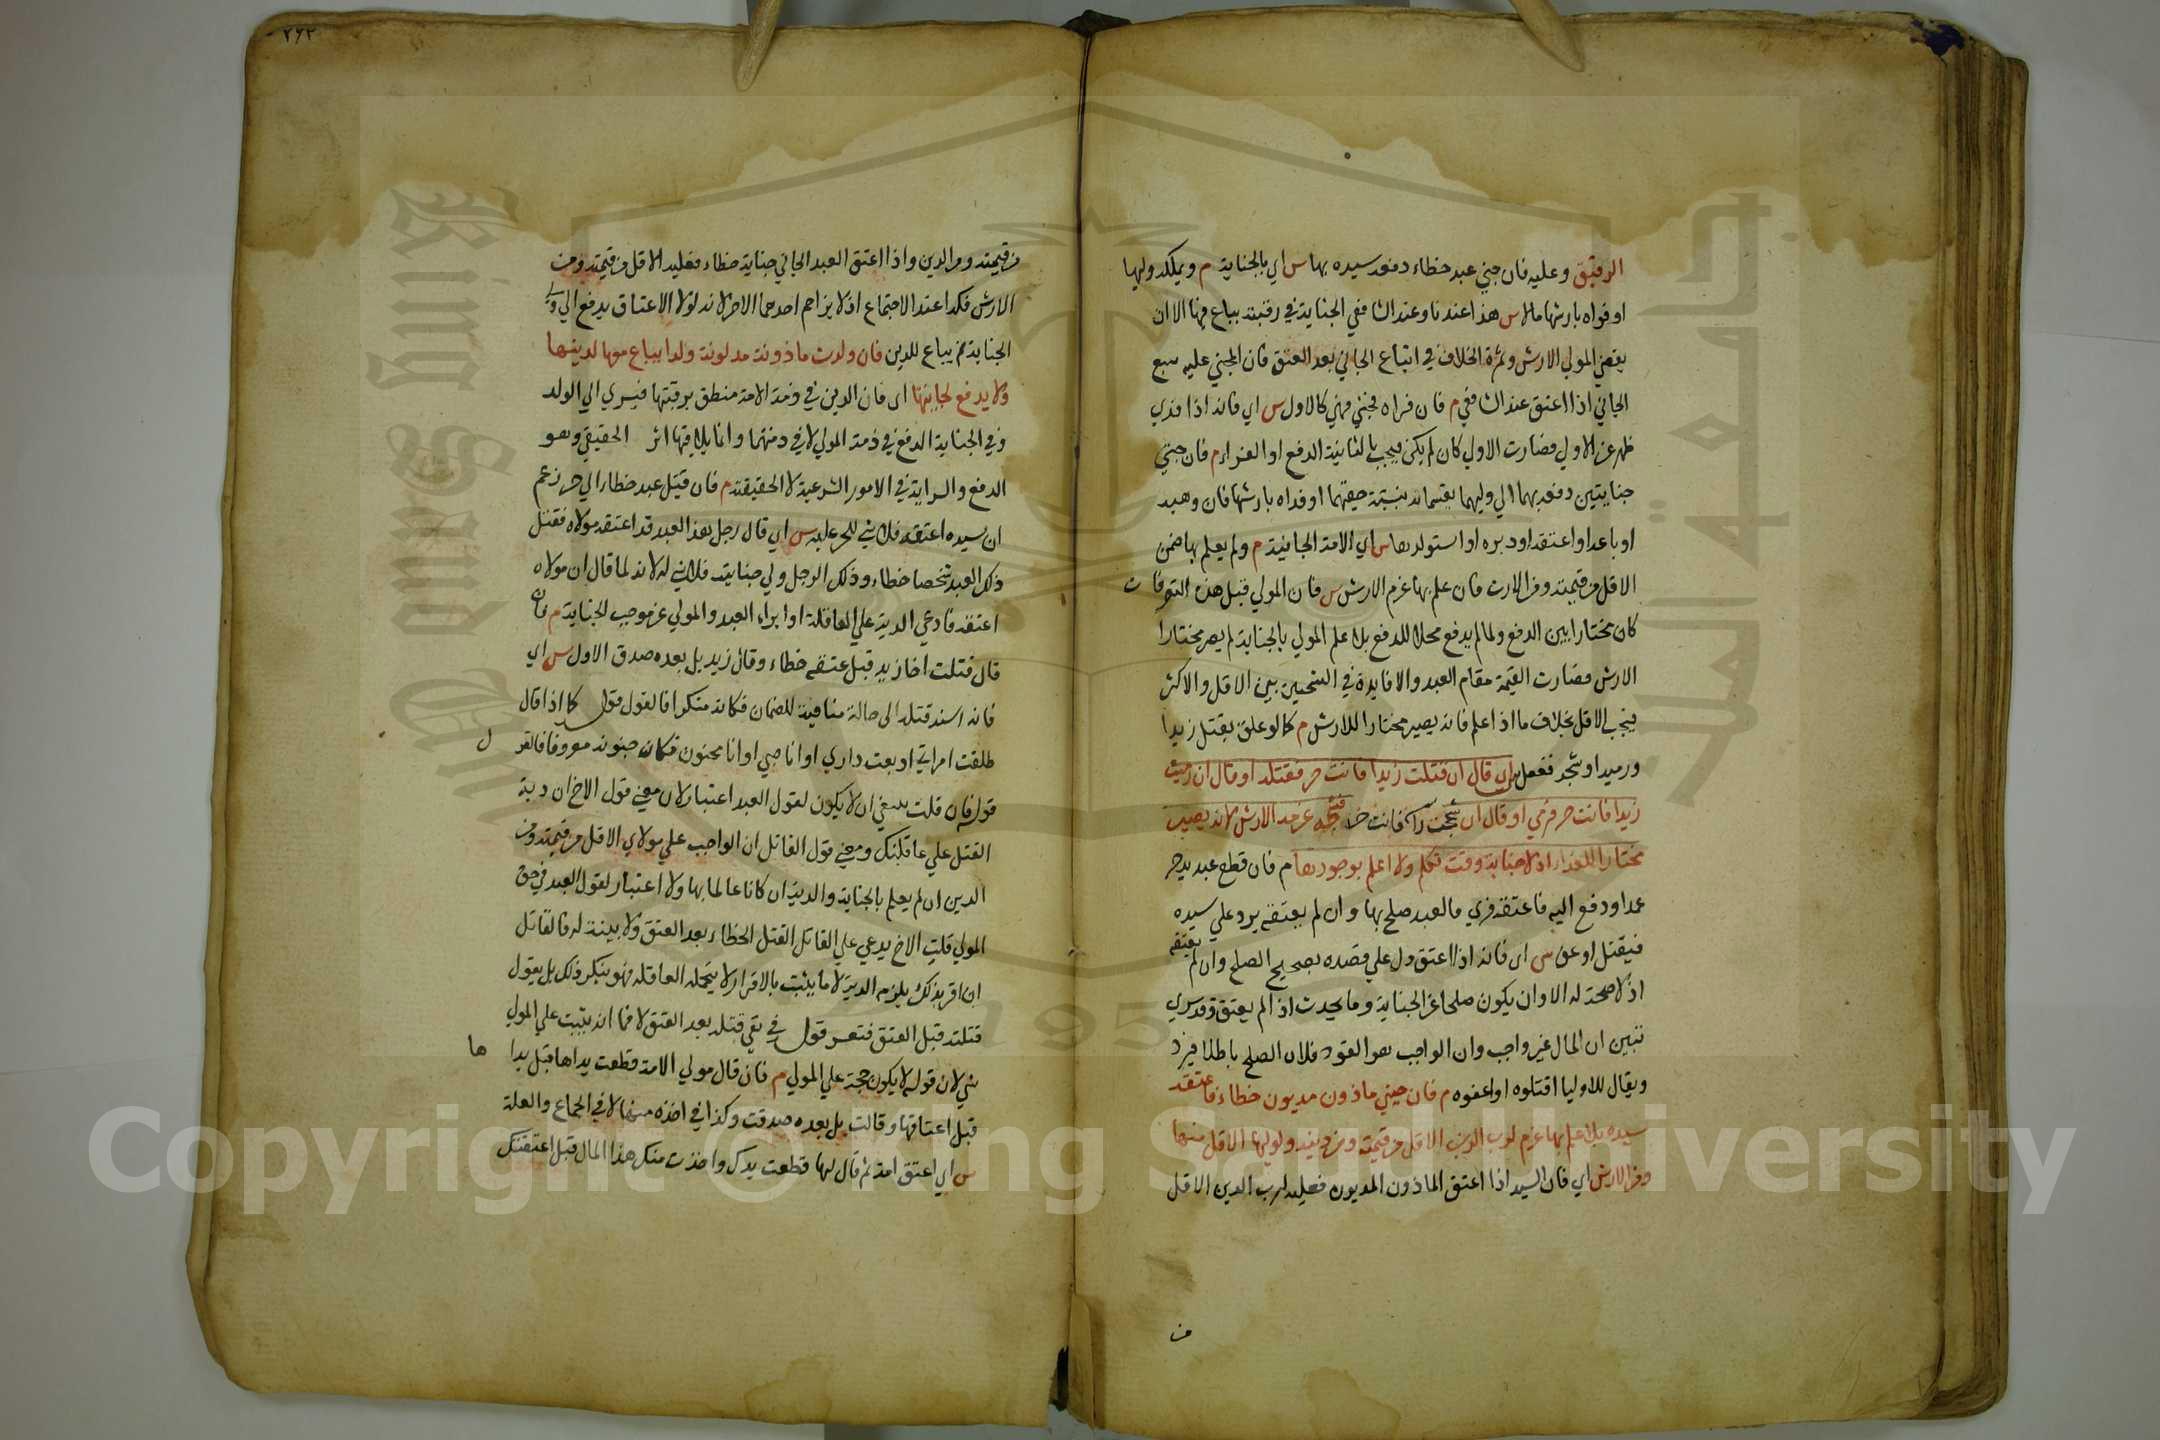 الرقيق وعليه فان جني عبد خطاء دفعه سيده بها س اي بالجناية م ويملكه وليها
او فداه بارشها حالا س هذا عندنا وعند الشافعي الجناية في رقبته يباع فيها الا ان
يقضي المولي الارش وثمرة الخلاف في اتباع الجاني بعد العتق فان المجني عليه يتبع
الجاني اذا اعتق عند الشافعي م فان فداه فجني فهي كالاول س اي فانه اذا فدي
طهر عن الاولي فصارت الاولي كان لم يكن فيجب بالثانية الدفع او الفداء م فان جني
جنايتين دفعه بهما الي وليهما يقتسمانه بنسبة حقيهما او فداه بارشهما فان وهبه
او باعه او اعتقه او دبره او استولدها س اي الامة الجانية م ولم يعلم بها ضمن
الاقل من قيمته ومن الارش فان علم بها غرم الارش س فان المولي قبل هذه التصرفات
كان مختارا بين الدفع ولما لم يدفع محلا للدفع بلا علم المولي بالجناية لم يصر مختارا
الارش فصارت القيمة مقام العبد ولا فايدة في التخيير بين الاقل والاكثر
فيجب الاقل بخلاف ما اذا علم فانه يصير مختارا للارش م كما لو علق بقتل زيد
ورميه او شجه ففعل س اي قال ان قتلت زيدا فانت حر فقتله او قال ان رميت
زيدا فانت حر فرمي او قال ان شججت راسه فانت حر فشجه غرم الارش لانه يصير
مختارا للفداء اذ لا جناية وقت تكلمه ولا علم بوجودها م فان قطع عبد يد حر
عمدا ودفع اليه فاعتقه فسري فالعبد صلح بها وان لم يعتقه يرد علي سيده
فيقتل او عفي س اي فانه اذا اعتق دل علي قصده تصحيح الصلح وان لم يعتقه
اذ لا صحة له الا وان يكون صلحا عن الجناية وما يحدث اذا لم يعتق وقد سري
تبين ان المال غير واجب وان الواجب هو القود فكان الصلح باطلا فيرد
ويقال للاوليا اقتلوه او اعفوه م فان جني ماذون مديون خطاء فاعتقه
سيده بلا علم بها غرم لرب الدين الاقل من قيمته ومن دينه ولوليها الاقل منها
ومن الارش اي فان السيد اذا اعتق الماذون المديون فعليه لرب الدين الاقل
من
٢٦٢
من قيمته ومن الدين واذا اعتق العبد الجاني جناية خطاء فعليه الاقل من قيمته ومن
الارش فكذا عند الاجتماع اذ لا يزاحم احدهما الاخر لانه لولا الاعتاق يدفع الي ولي
الجناية ثم يباع للدين فان ولدت ماذونة مديونة ولدا يباع معها لدينها
ولا يدفع لجنايتها اي فان الدين في ذمة الامة متعلق برقبتها فيسري الي الولد
وفي الجناية الدفع في ذمة المولي لا في ذمتها وانما يلاقيها اثر الحقيقي وهو
الدفع والسراية في الامور الشرعية لا الحقيقة م فان قتل عبد خطاء ولي حر زعم
ان سيده اعتقه فلا شي للحر عليه س اي قال رجل هذا العبد قد اعتقه مولاه فقتل
ذلك العبد شخصا خطاء وذلك الرجل ولي جنايته فلا شي له لانه لما قال ان مولاه
اعتقه فادعي الدية علي العاقلة او ابراء العبد والمولي عن موجب الجناية م فان
قال قتلت اخا زيد قبل عتقي خطاء وقال زيد بل بعده صدق الاول س اي
فانه اسند قتله الي حالة منافية للضمان فكان منكرا فالقول قوله كما اذا قال
طلقت امراتي او بعت داري وانا صبي او انا مجنون فكان جنونه معروفا فالقول
قوله فان قلت ينبغي ان لا يكون لقول العبد اعتبار لان معني قول الاخ ان دية
القتل علي عاقلتك ومعني قول القاتل ان الواجب علي مولاي الاقل من قيمته ومن
الدين ان لم يعلم بالجناية والدية ان كان عالما بها ولا اعتبار لقول العبد في حق
المولي قلت الاخ يدعي علي القاتل القتل الخطاء بعد العتق ولا بينة له فالقاتل
ان اقر بذلك يلزمه الدية لا ما يثبت بالاقرار لا يتحمله العاقلة فهو ينكر ذلك بل يقول
قتلته قبل العتق فتعتبر قوله في نفي قتله بعد العتق لا فيما انه يثبت علي المولي
شي لان قوله لا يكون حجة علي المولي م فان قال مولي الامة قطعت يدها قبل
قبل اعتاقها وقالت بل بعده صدقت وكذا في اخذه منها لا في الجماع والغلة
س اي اعتق امة ثم قال لها قطعت يدك واخذت منك هذا المال قبل اعتقتك